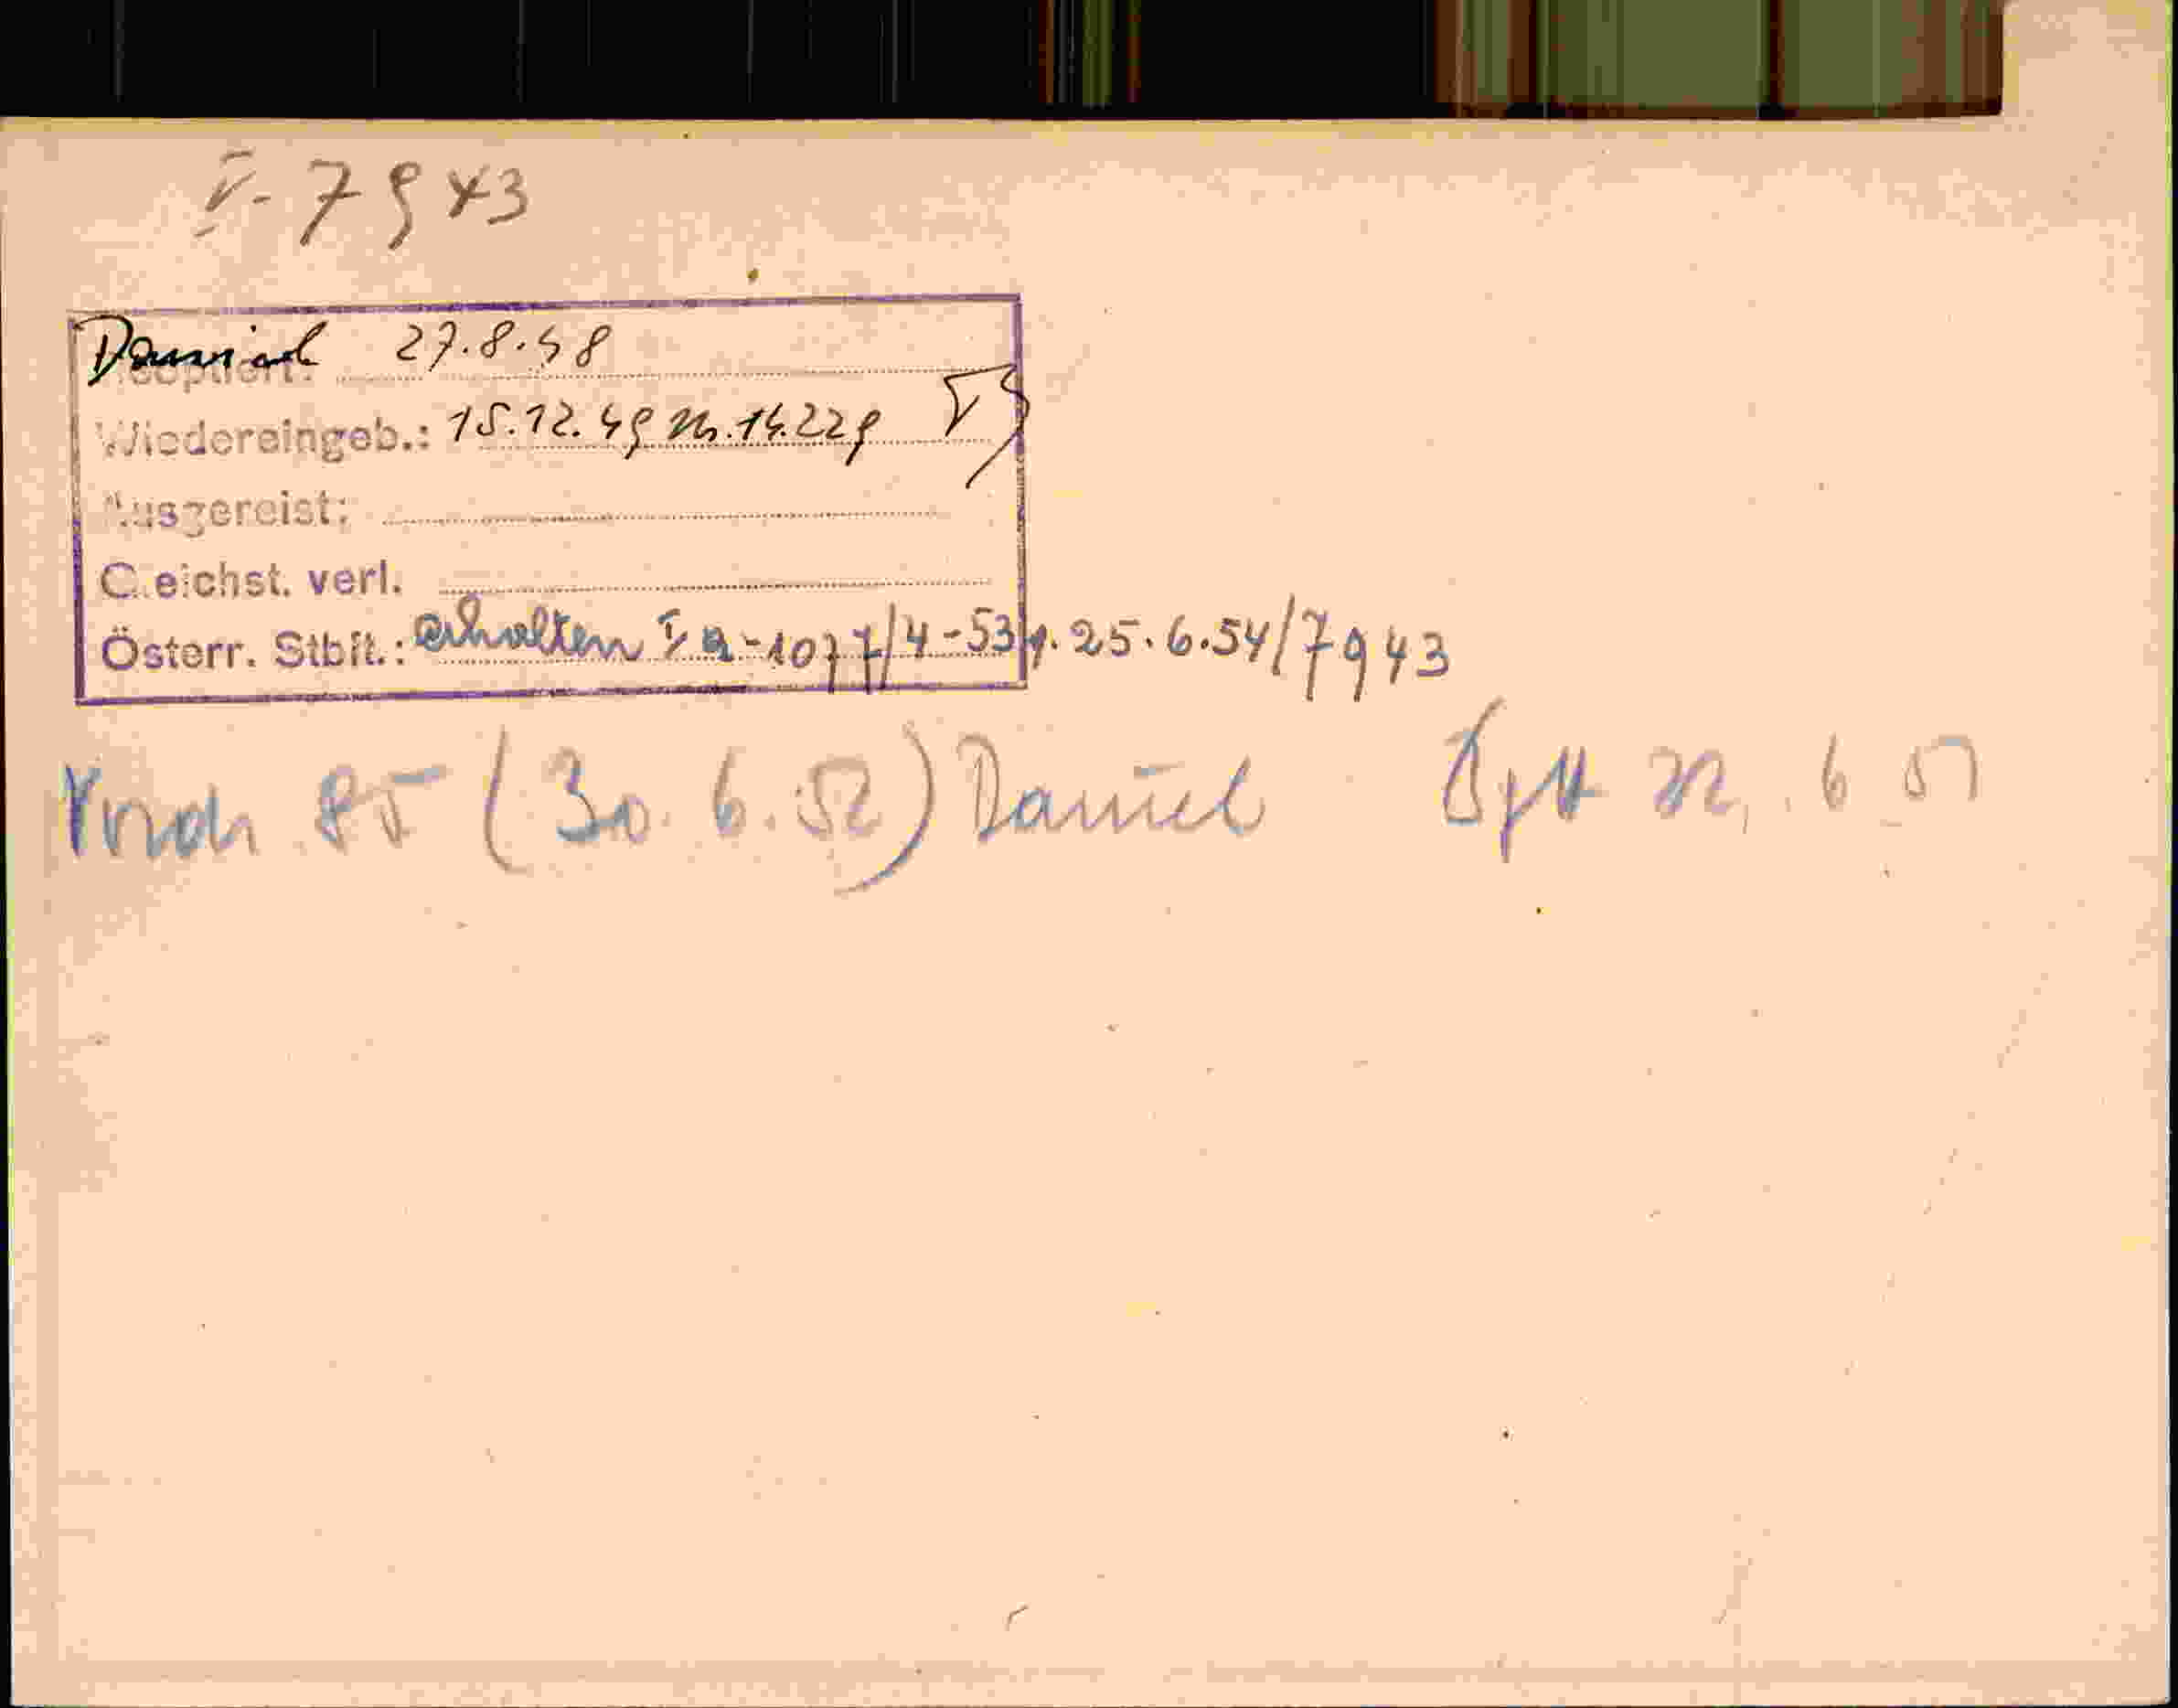 V-7943
Daniel 27.8.48
Reoptiert:
Wiedereingeb.: 15.12.49 Nr. 14.229
Ausgereist:
Gleichst. verl.
Österr. Stbft.: erhalten Ia-1077/4-53 v. 25.6.54/7943
85 (30.6.52) Daniel 22.6.51